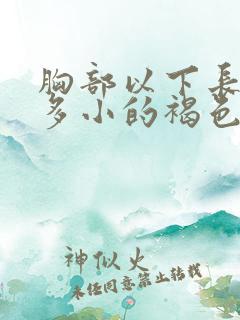 胸部以下長
多小的褐色
神似火
未经同意禁止转载